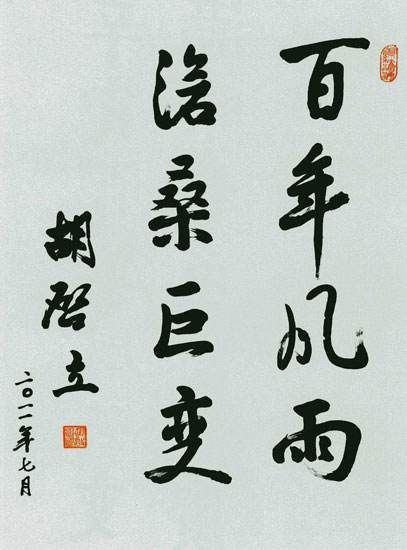 百年风雨
沧桑巨变
胡启立
二〇一一年七月